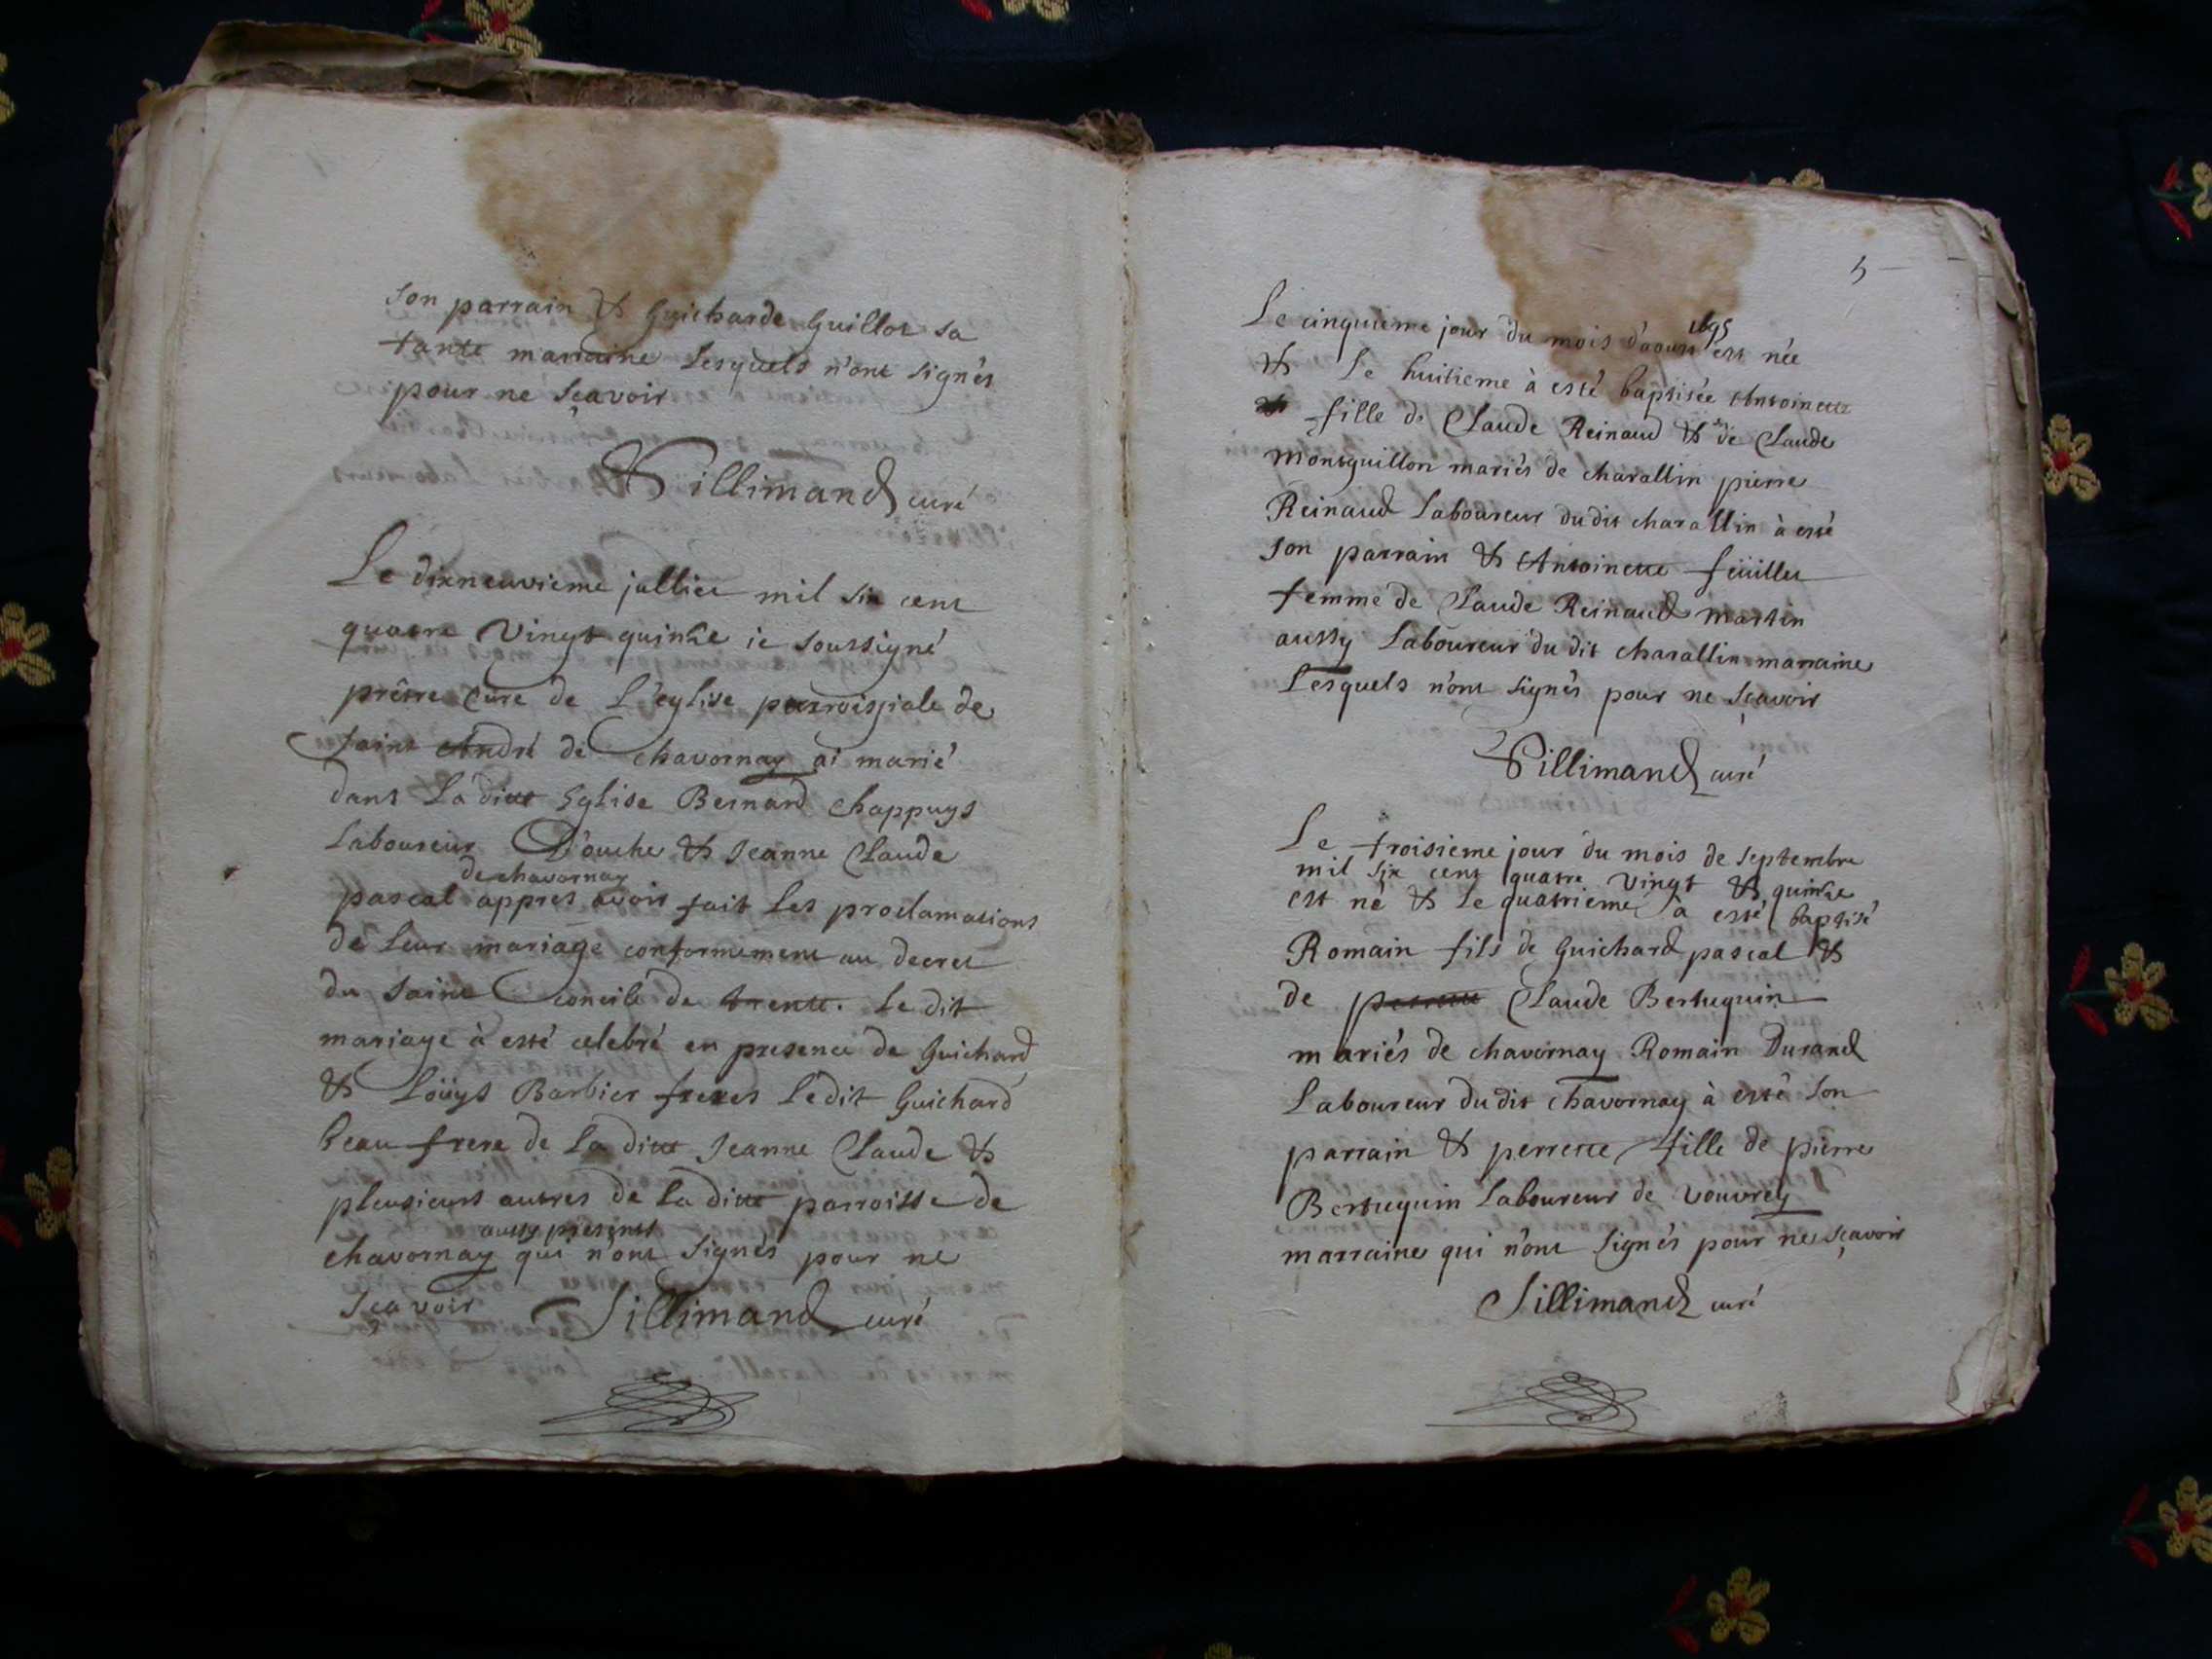 son parrain & Guicharde Guillot sa
tante marraine Lesquels n'ont signés
pour ne sçavoir
Sillimand curé
Le dixneuvieme julliet mil six cent
quatre Vingt quinze ie soussigné
prêtre Curé de L'eglise parroissiale de
saint André de Chavornay ai marié
dans La ditte Eglise Bernard Chappuys
Laboureur D'ouche & Jeanne Claude
de chavornay
pascal appres avoir fait Les proclamations
de Leur mariage conformement au decret
du saint Concile de trente. Le dit
mariage à esté celebré en presence de Guichard
& Loüys Barbier freres Ledit Guichard
beau frere de La ditte Jeanne Claude &
pleusieurs autres de La ditte parroisse de
aussy presents
chavornay qui n'ont signés pour ne
sçavoir Sillimand curé
5
1695
Le cinquieme jour du mois d'aoust est née
& Le huitieme à esté baptisée Antoinette
& fille de Claude Reinaud & de Claude
montguillon mariés de charallin pierre
Reinaud Laboureur dudit charallin à esté
son parrain & Antoinette feüillet
femme de Claude Reinaud martin
aussy Laboureur du dit charallin marraine
Lesquels n'ont signés pour ne sçavoir
Sillimand curé
Le troisieme jour du mois de septembre
mil six cent quatre Vingt & quinze
est né & Le quatrieme à esté baptisé
Romain fils de Guichard pascal &
de perrette Claude Bertuquin
mariés de chavornay Romain Durand
Laboureur dudit chavornay à esté son
parrain & perrette fille de pierre
Bertuquin Laboureur de vouvrey
marraine qui n'ont signés pour ne sçavoir
Sillimand curé